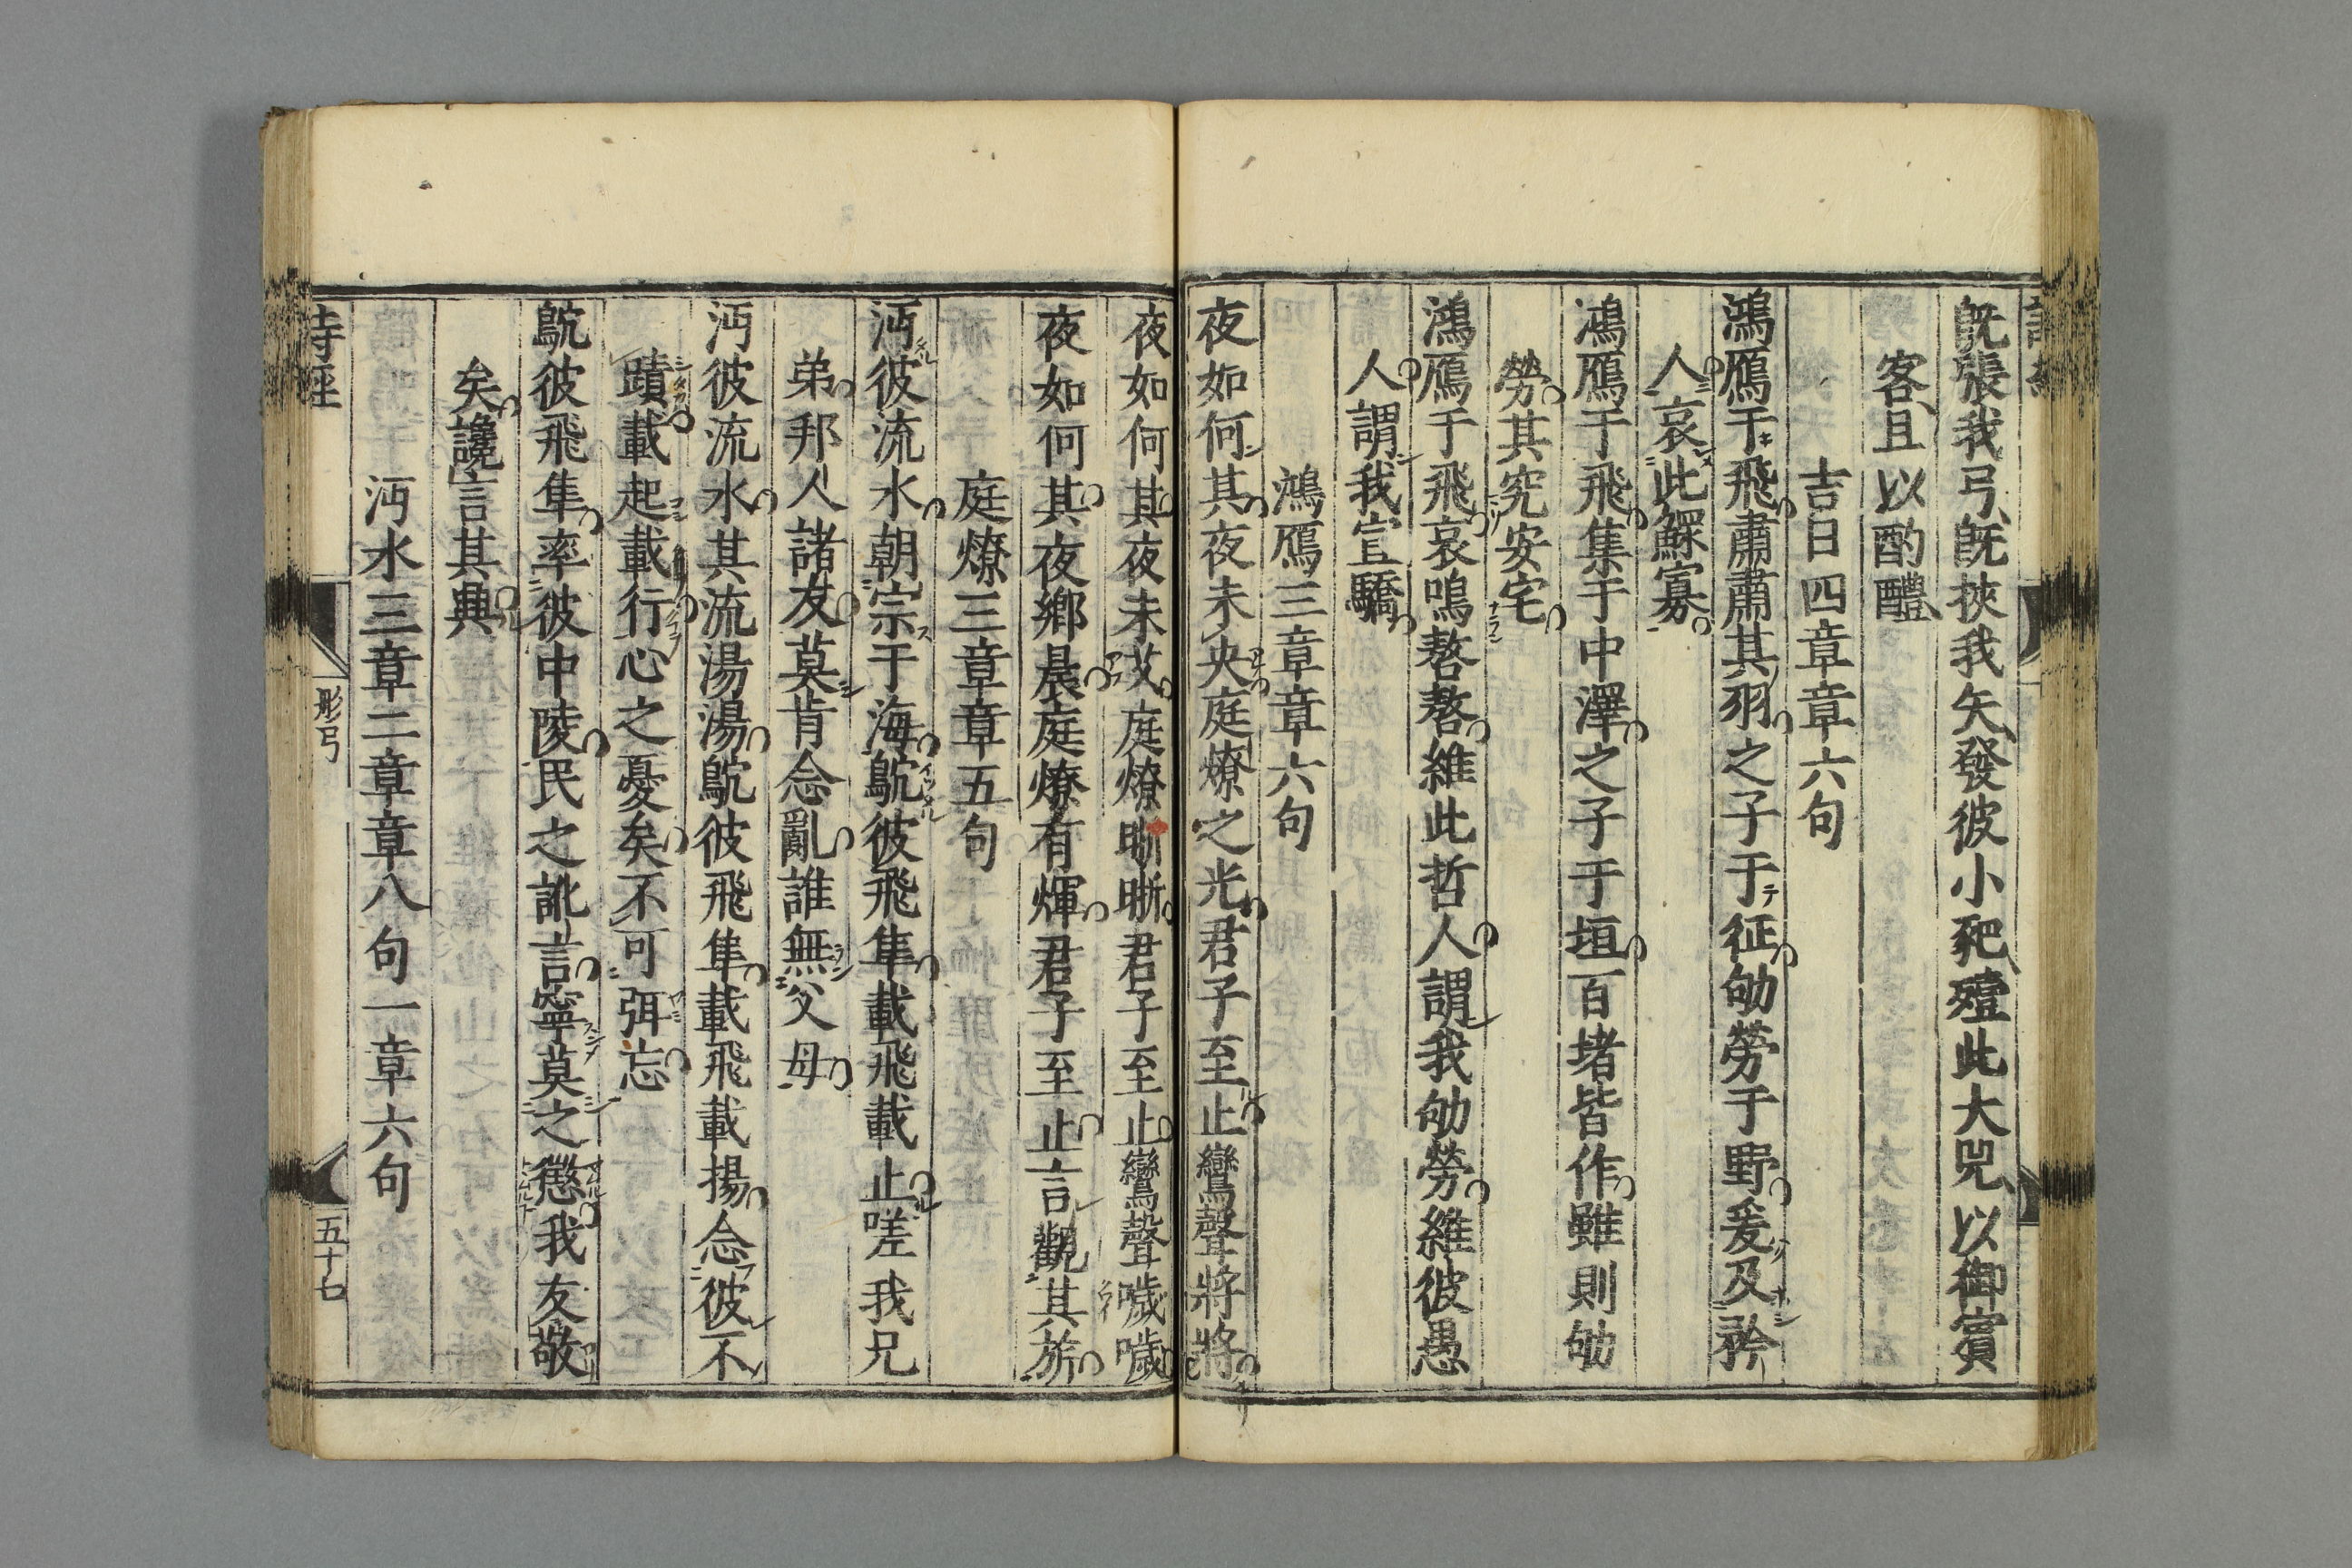 既張我弓既挾我矢發彼小豝殪此大兕以御賓
客且以酌醴
吉日四章章六句
鴻鴈于飛肅肅其羽之子于征劬勞于野爰及矜
人哀此鰥寡
鴻鴈于飛集于中澤之子于垣百堵皆作雖則劬
勞其究安宅
鴻鴈于飛哀鳴嗸嗸維此哲人謂我劬勞維彼愚
人謂我宣驕
鴻鴈三章章六句
夜如何其夜未央庭燎之光君子至止鸞聲將將
夜如何其夜未艾庭燎晣晣君子至止鸞聲噦噦
夜如何其夜鄉晨庭燎有煇君子至止言觀其旂
庭燎三章章五句
沔彼流水朝宗于海鴥彼飛隼載飛載止嗟我兄
弟邦人諸友莫肯念亂誰無父母
沔彼流水其流湯湯鴥彼飛隼載飛載揚念彼不
蹟載起載行心之憂矣不可弭忘
鴥彼飛隼率彼中陵民之訛言寧莫之懲我友敬
矣讒言其興
沔水三章二章章八句一章六句
詩經
彤弓
五十七